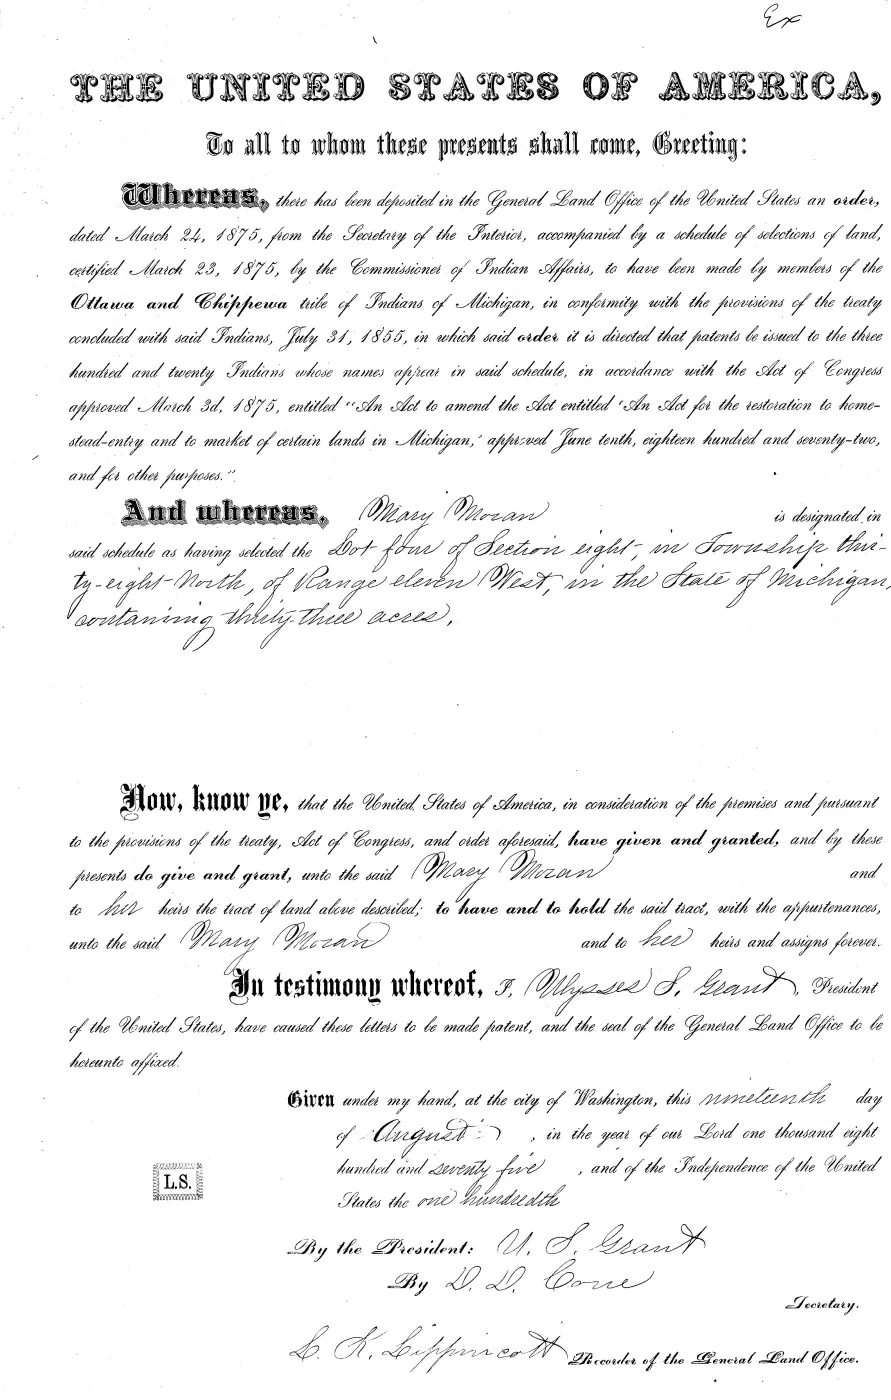 Ex
THE UNITED STATES OF AMERICA,
To all to whom these presents shall come, Greeting:
Whereas, there has been deposited in the General Land Office of the United States an order,
dated March 24, 1875, from the Secretary of the Interior, accompanied by a schedule of selections of land,
certified March 23, 1875, by the Commissioner of Indian Affairs, to have been made by members of the
Ottawa and Chippewa tribe of Indians of Michigan, in conformity with the provisions of the treaty
concluded with said Indians, July 31, 1855, in which said order it is directed that patents be issued to the three
hundred and twenty Indians whose names appear in said schedule, in accordance with the Act of Congress
approved March 3d, 1875, entitled "An Act to amend the Act entitled 'An Act for the restoration to home-
stead-entry and to market of certain lands in Michigan,' approved June tenth, eighteen hundred and seventy-two,
and for other purposes."
And whereas, Mary Moran is designated in
said schedule as having selected the Lot four of Section eight, in Township thir-
ty-eight North, of Range eleven West, in the State of Michigan,
containing thirty-three acres.
Now, know ye, that the United States of America, in consideration of the premises and pursuant
to the provisions of the treaty, Act of Congress, and order aforesaid, have given and granted, and by these
presents do give and grant, unto the said Mary Moran and
to her heirs the tract of land above described; to have and to hold the said tract, with the appurtenances,
unto the said Mary Moran and to her heirs and assigns forever.
In testimony whereof, I, Ulysses S. Grant, President
of the United States, have caused these letters to be made patent, and the seal of the General Land Office to be
hereunto affixed.
Given under my hand, at the city of Washington, this nineteenth day
of August, in the year of our Lord one thousand eight
hundred and seventy five, and of the Independence of the United
L.S.
States the one hundredth
By the President: U. S. Grant
By D. D. Cone
Secretary.
L. K. Lippincott Recorder of the General Land Office.